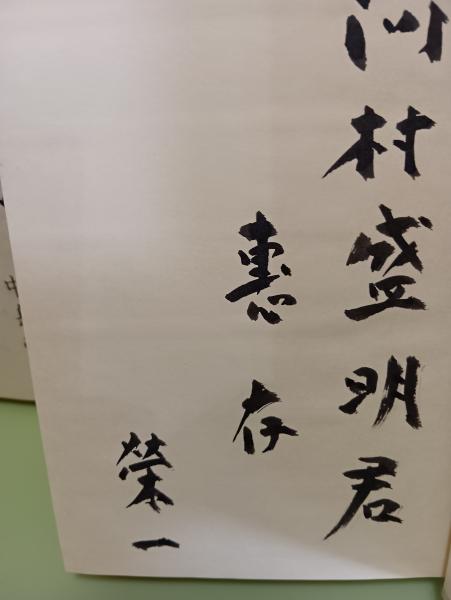 河村盛明君
惠存
榮一